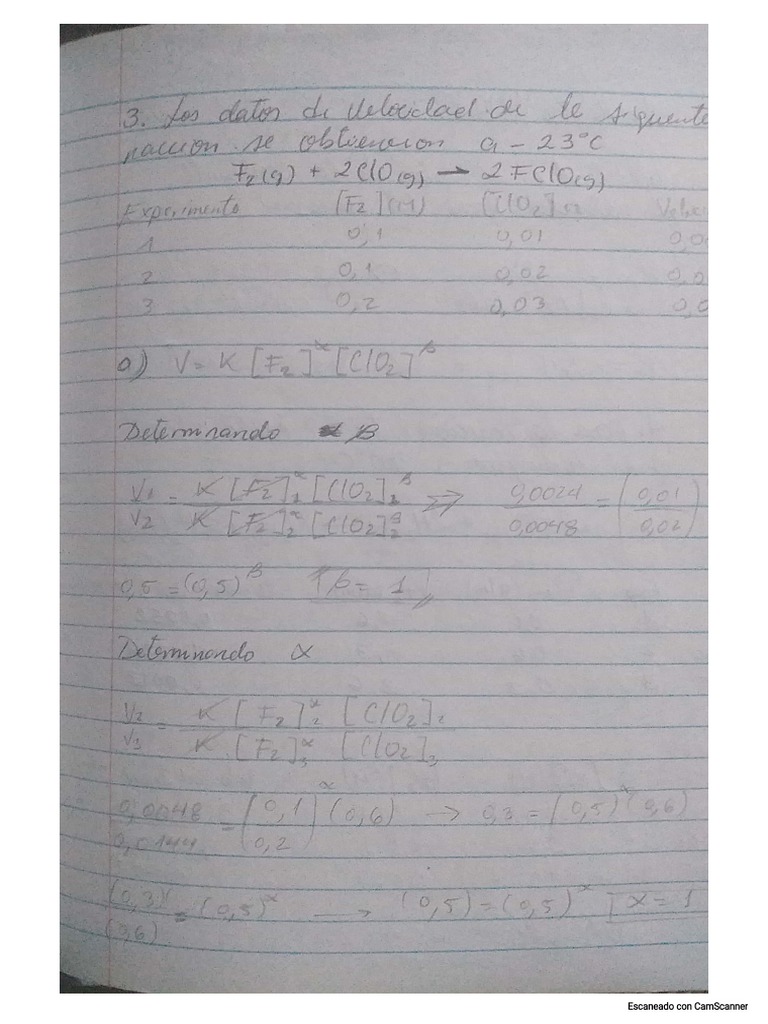 3. Los datos de Velocidad de la siguente
reaccion se obtuvieron a -23°C
F₂(g) + 2ClO(g) → 2FClO(g)
Experimento [F₂](M) [ClO₂]
1 0,1 0,01 0,0
2 0,1 0,02 0,0
3 0,2 0,03 0,0
a) V= K [F₂]^α [ClO₂]^β
Determinando β
V₁/V₂ = K [F₂]₁^α [ClO₂]₁^β / K [F₂]₂^α [ClO₂]₂^β ⇒ 0,0024/0,0048 = (0,01/0,02)
0,5 = (0,5)^β β = 1
Determinando α
V₂/V₃ = K [F₂]₂^α [ClO₂]₂ / K [F₂]₃^α [ClO₂]₃
0,0048 = (0,1/0,2)^α (0,6) → 0,3 = (0,5)^α (0,6)
(0,3)/(0,6) = (0,5)^α → (0,5) = (0,5)^α α = 1
Escaneado con CamScanner